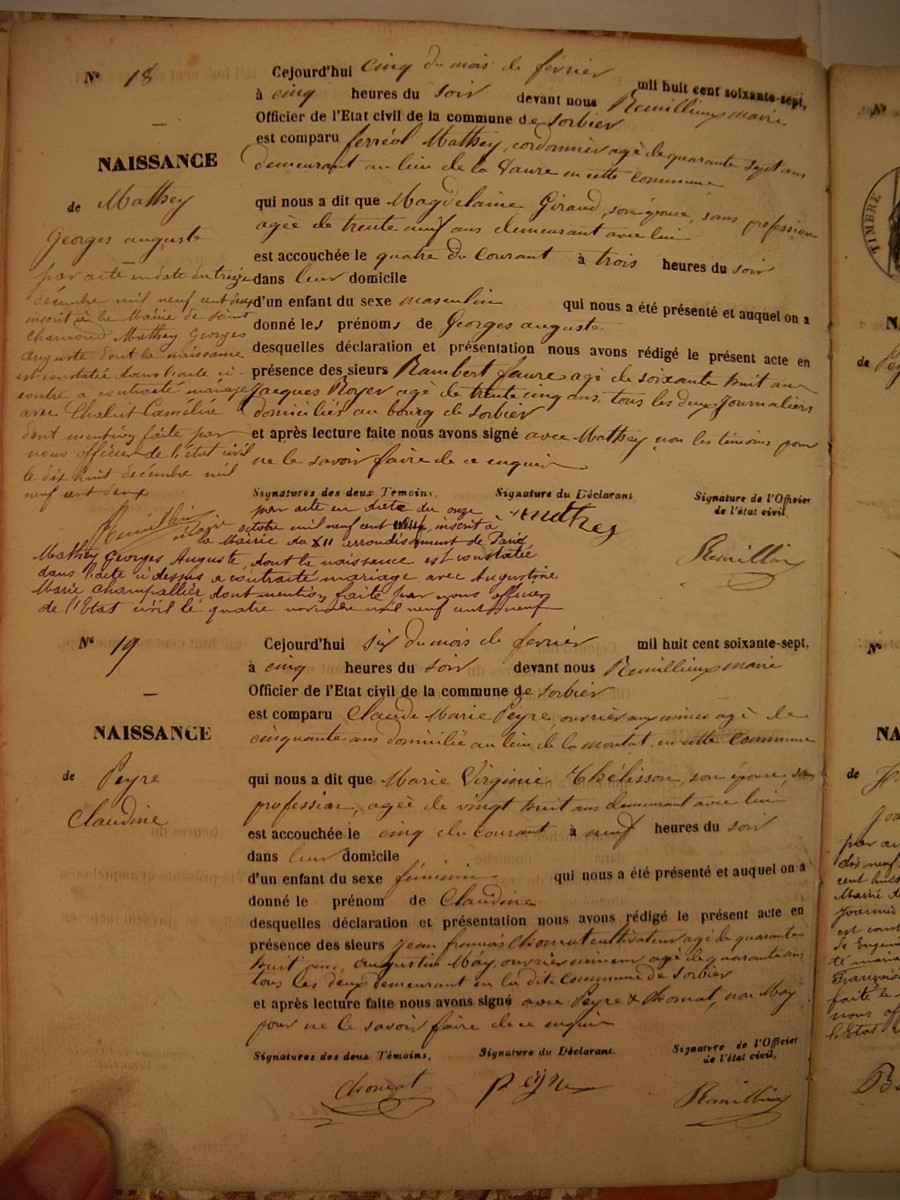 N° 18
Cejourd'hui cinq du mois de février mil huit cent soixante-sept,
à cinq heures du soir devant nous Remillieux maire
Officier de l'Etat civil de la commune de Sorbier
est comparu ferréol Mathey, cordonnier agé de quarante sept ans
demeurant au lieu de la Vaure en cette commune
NAISSANCE
de Mathey
Georges auguste
qui nous a dit que Magdelaine Giraud, son épouse, sans profession
agée de trente neuf ans demeurant avec lui
est accouchée le quatre du courant à trois heures du soir
dans leur domicile
d'un enfant du sexe masculin qui nous a été présenté et auquel on a
donné les prénoms de Georges auguste
desquelles déclaration et présentation nous avons rédigé le présent acte en
présence des sieurs Rambert faure agé de soixante huit ans
Jacques Royer agé de trente cinq ans, tous les deux journaliers
domiciliés au bourg de sorbier
et après lecture faite nous avons signé avec Mathey non les témoins pour
ne le savoir faire de ce enquis
par acte en date du treize
décembre mil neuf cent deux
inscrit à la Mairie de Saint
Chamond Mathey Georges
Auguste dont la naissance
est constatée dans l'acte ci-
contre a contracté mariage
avec Chalut Camélie
dont mention faite par
nous officier de l'état civil
le dix huit décembre mil
neuf cent deux
Signatures des deux Témoins, Signature du Déclarant Signature de l'Officier
de l'état civil,
Mathey
Remillieux
par acte en date du onze
octobre mil neuf cent inscrit à
la Mairie du XII arrondissement de Paris
Mathey Georges Auguste, dont la naissance est constatée
dans l'acte ci dessus a contracté mariage avec Augustine
Marie Champallier dont mention faite par nous officier
de l'Etat civil le quatre novembre mil neuf cent neuf
N° 19
Cejourd'hui six du mois de février mil huit cent soixante-sept,
à cinq heures du soir devant nous Remillieux maire
Officier de l'Etat civil de la commune de sorbier
est comparu Claude Marie Peyre, ouvrier aux mines agé de
cinquante ans domicilié au lieu de la montat, en cette commune
NAISSANCE
de Peyre
Claudine
qui nous a dit que Marie Virginie Thélisson, son épouse, sans
profession, agée de vingt huit ans demeurant avec lui
est accouchée le cinq du courant à neuf heures du soir
dans leur domicile
d'un enfant du sexe féminin qui nous a été présenté et auquel on a
donné le prénom de Claudine
desquelles déclaration et présentation nous avons rédigé le présent acte en
présence des sieurs Jean françois Chomat cultivateur agé de quarante
huit ans, Augustin May, ouvrier mineur agé de quarante ans
tous les deux demeurant en la dite commune de Sorbier
et après lecture faite nous avons signé avec Peyre & Chomat, non May
pour ne le savoir faire de ce enquis
Signatures des deux Témoins, Signature du Déclarant. Signature de l'Officier
de l'état civil,
Chomat Peyre Remillieux
TIMBRE